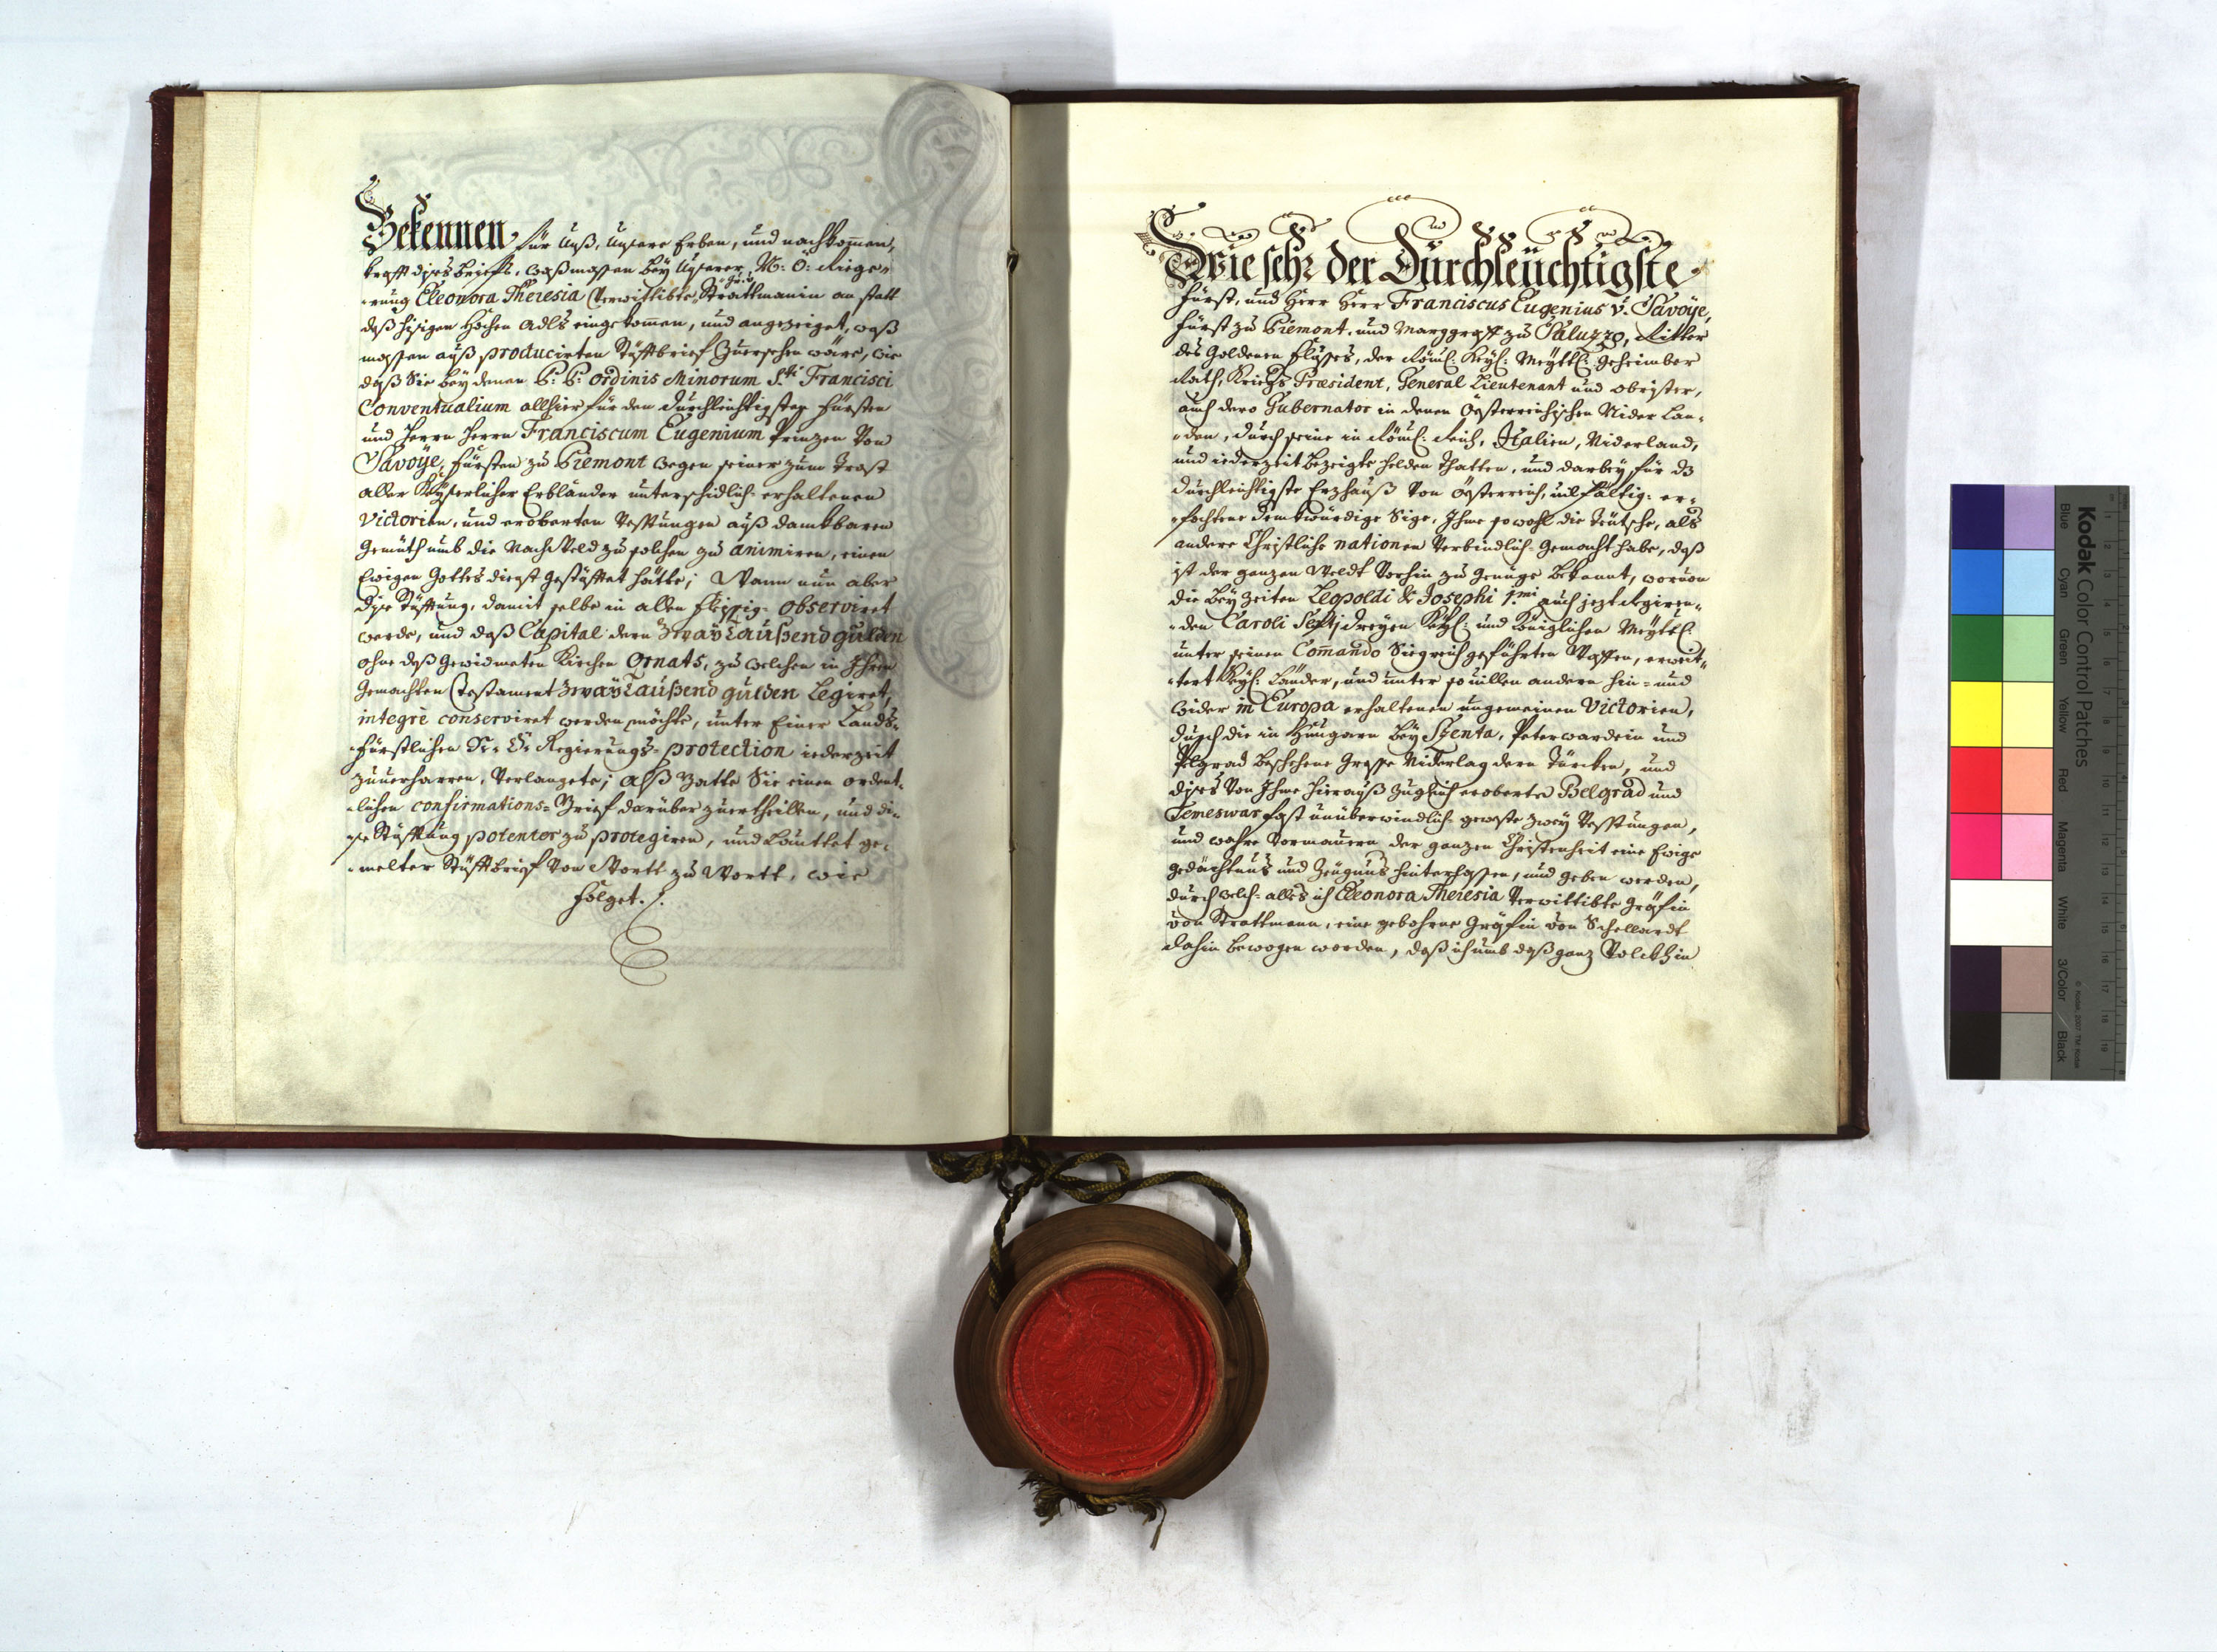 Bekennen für Unß, Unsere Erben, und nachkommen,
krafft dises briefs, waßmassen bey Unserer N: Ö: Regie-
-rung Eleonora Theresia Verwittibte Gräfin Strattmanin an statt
deß hisigen Hochen Adls eingekommen, und angezeiget, waß
massen auß producirten Stüfftbrief Zuersehen wäre, wie
daß Sie bey denen P: P: Ordinis Minorum S.ti Francisci
Conventualium allhier für den durchleüchtigsten Fürsten
und Herrn Herrn Franciscum Eugenium Prinzen Von
Savoÿe, Fürsten zu Piemont wegen seiner zum Trost
aller Kayserlicher Erbländer unterschidlich- erhaltenen
Victorien, und eroberten Vesstungen auß dankbaren
Gemüth umb die Nach Weld zu solchen zu animiren, einen
Ewigen Gottes dienst gestüfftet hätte; Wann nun aber
dise Stüfftung, damit selbe in allen fleissig- observiret
werde, und daß Capital deren Zwaÿ Taußend gulden
ohne deß gewidmeten Kirchen Ornats, zu welchen in Ihren
gemachten Testament Zwaÿ Taußend gulden Legiret,
integrè conserviret werden möchte, unter Einer Lands-
-Fürstlichen N: Ö: Regierungs- protection iederzeit
zuuerharren, Verlangete; Alß Batte Sie einen ordent-
-lichen confirmations- Brief darüber zuertheillen, und di-
-se Stüfftung potenter zu protegiren, und Lauttet ge-
-melter Stüfftbrief Von Wortt zu Wortt, wie
folget.
Wie sehr der Dürchleüchtigste
Fürst, und Herr Herr Franciscus Eugenius v: Savoÿe,
Fürst zu Piemont, und Marggraff zu Saluzzo, Ritter
des Goldenen Flusses, der Röml: Kayl: Maytt: geheimber
Rath, Kriegs Præsident, General Lieutenant und obrister,
auch dero Gubernator in denen Össterreichischen Nider Lan-
-den, durch seine in Röml: Reich, Italien, Niderland,
und iederzeit bezeigte Helden Thatten, und darbey für dz
durchleichtigste Erzhauß Von Össterreich, uilfältig- er-
-fochtene denkwürdige Sige, Ihme sowohl die Teütsche, als
andere Christliche nationen Verbindlich- gemacht habe, daß
ist der ganzen Weldt Vorhin zu genüge bekannt, woruon
die bey Zeiten Leopoldi & Josephi 1.mi auch jezt Regiren-
-den Caroli Sexti dreyen Kayl: und Königlichen Maytt:
unter seinen Comando Siegreich geführten Waffen, erweit-
-tert Kayl: Länder, und unter so uillen andern hin- und
wider in Europa erhaltenen ungemeinen Victorien,
durch die in Hungarn bey Szenta, Peterwardein und
Pelgrad beschehene Grosse Niderlag deren Türcken, und
dises Von Ihme hierauß zugleich eroberte Belgrad und
Temeswar fast unüberwindlich- geweste zwey Vesstungen,
und wahre Vormauern der ganzen Christenheit eine Ewige
gedächtnus und Zeügnus hinterlassen, und geben werden,
durch welch- alles ich Eleonora Theresia Verwittibte Gräfin
von Strattmann, eine gebohrne Gräfin von Schellardt
dahin bewogen worden, daß ich umb daß ganz Volck hin
Kodak Color Control Patches
Blue Cyan Green Yellow Red Magenta White 3/Color Black
© Kodak, 2007 TM: Kodak